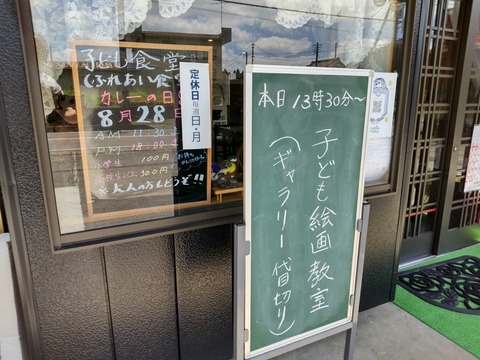 子ども食堂
(ふれあい食
カレーの日
8月28日
AM 11:30
PM
学生 100円
300円
大人の方もどうぞ!!
定休日 毎週 日・月
本日 13時30分〜
子ども絵画教室
(ギャラリー貸切り)